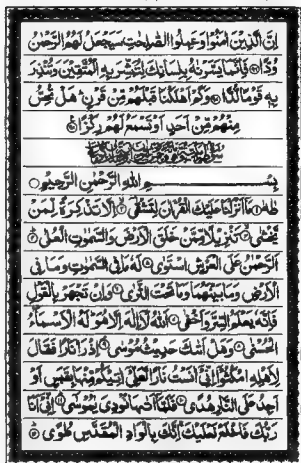 اِنَّ الَّذِيْنَ اٰمَنُوْا وَعَمِلُوا الصّٰلِحٰتِ سَيَجْعَلُ لَهُمُ الرَّحْمٰنُ
وُدًّا ۞ فَاِنَّمَا يَسَّرْنٰهُ بِلِسَانِكَ لِتُبَشِّرَ بِهِ الْمُتَّقِيْنَ وَتُنْذِرَ
بِهٖ قَوْمًا لُّدًّا ۞ وَكَمْ اَهْلَكْنَا قَبْلَهُمْ مِّنْ قَرْنٍ هَلْ تُحِسُّ
مِنْهُمْ مِّنْ اَحَدٍ اَوْ تَسْمَعُ لَهُمْ رِكْزًا ۞
بِسْمِ اللّٰهِ الرَّحْمٰنِ الرَّحِيْمِ
طٰهٰ ۞ مَآ اَنْزَلْنَا عَلَيْكَ الْقُرْاٰنَ لِتَشْقٰٓى ۞ اِلَّا تَذْكِرَةً لِّمَنْ
يَّخْشٰى ۞ تَنْزِيْلًا مِّمَّنْ خَلَقَ الْاَرْضَ وَالسَّمٰوٰتِ الْعُلٰى ۞
اَلرَّحْمٰنُ عَلَى الْعَرْشِ اسْتَوٰى ۞ لَهٗ مَا فِى السَّمٰوٰتِ وَمَا فِى
الْاَرْضِ وَمَا بَيْنَهُمَا وَمَا تَحْتَ الثَّرٰى ۞ وَاِنْ تَجْهَرْ بِالْقَوْلِ
فَاِنَّهٗ يَعْلَمُ السِّرَّ وَاَخْفٰى ۞ اَللّٰهُ لَآ اِلٰهَ اِلَّا هُوَ لَهُ الْاَسْمَآءُ
الْحُسْنٰى ۞ وَهَلْ اَتٰىكَ حَدِيْثُ مُوْسٰى ۞ اِذْ رَاٰ نَارًا فَقَالَ
لِاَهْلِهِ امْكُثُوْٓا اِنِّىْٓ اٰنَسْتُ نَارًا لَّعَلِّىْٓ اٰتِيْكُمْ مِّنْهَا بِقَبَسٍ اَوْ
اَجِدُ عَلَى النَّارِ هُدًى ۞ فَلَمَّآ اَتٰىهَا نُوْدِىَ يٰمُوْسٰى ۞ اِنِّىْٓ اَنَا
رَبُّكَ فَاخْلَعْ نَعْلَيْكَ اِنَّكَ بِالْوَادِ الْمُقَدَّسِ طُوًى ۞